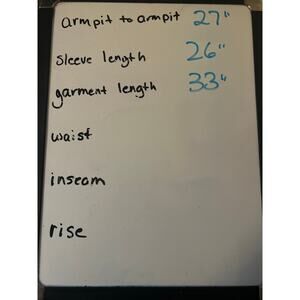 armpit to armpit 27"
sleeve length 26"
garment length 33"
waist
inseam
rise